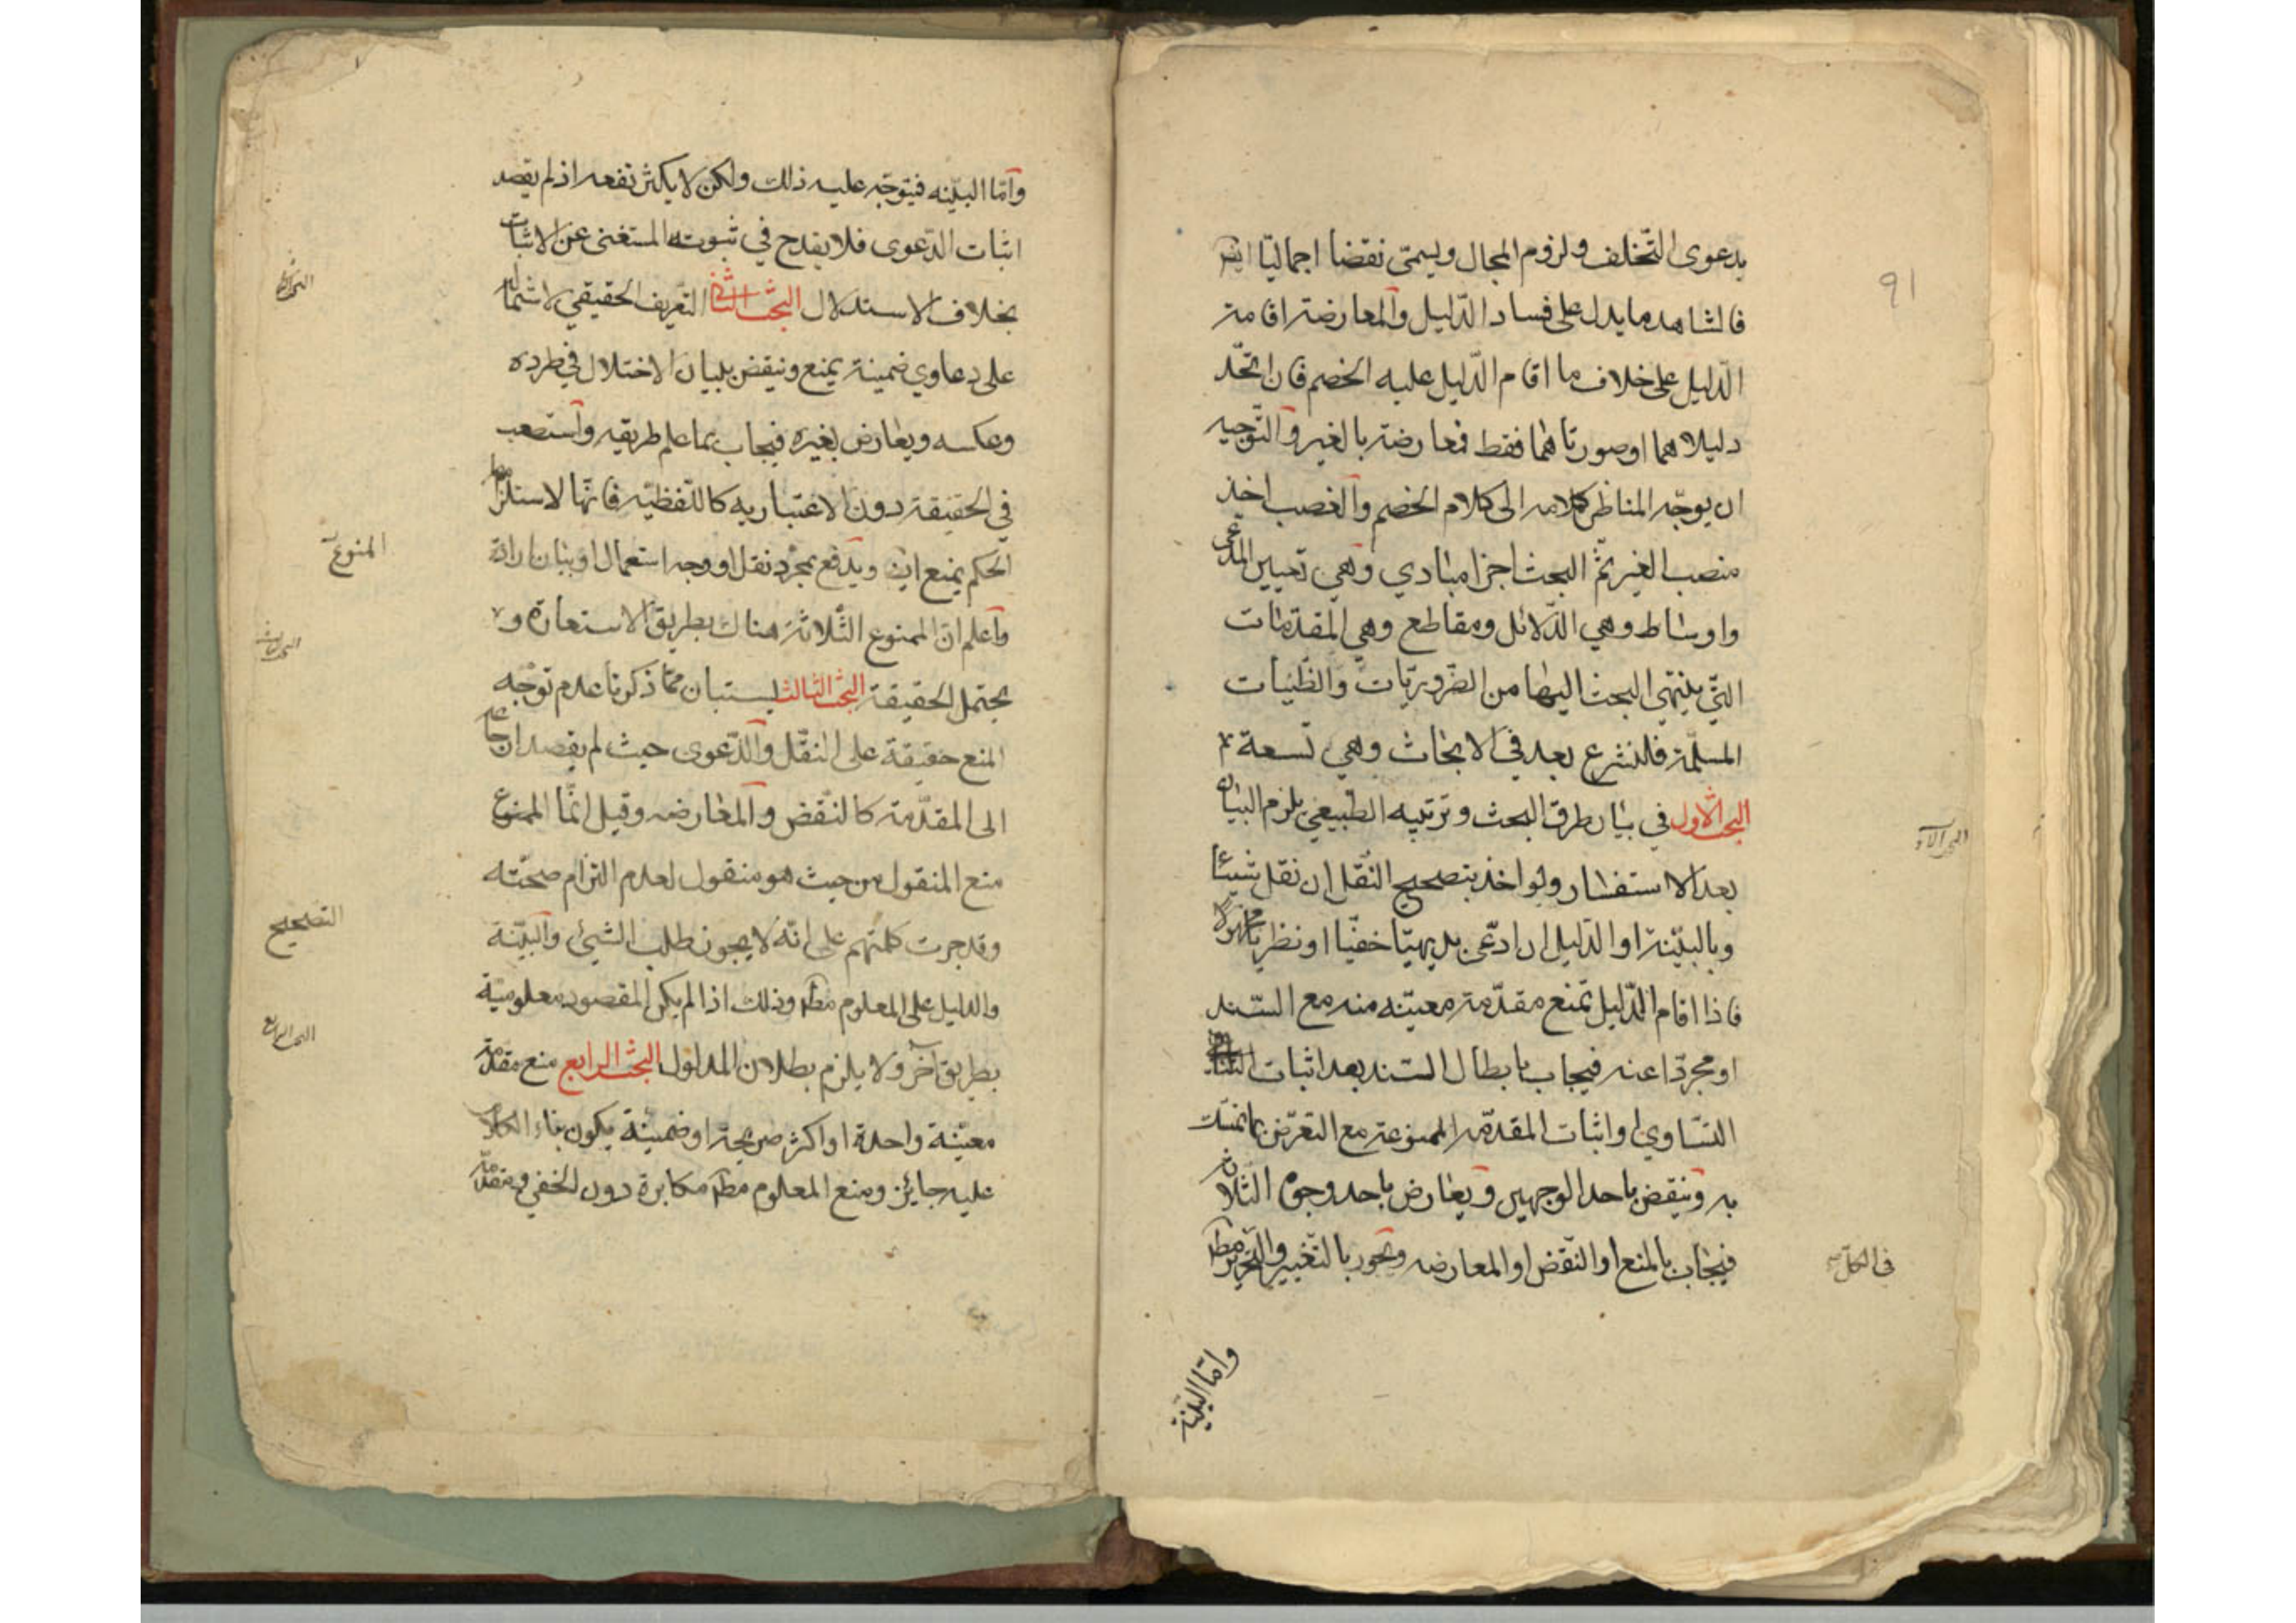 91
بدعوى التّخلف ولزوم المجال ويسمّى نقضا اجماليّا ايضا
فالشاهد ما يدل على فساد الدّليل والمعارضة اقامة
الدّليل على خلاف ما اقام الدّليل عليه الخصم فان اتّحد
دليلاهما او صورتاهما فقط فمعارضة بالغير والتّوجيه
ان يوجّه المناظر كلامه الى كلام الخصم والغصب اخذ
منصب الغير ثمّ البحث اجزا مبادي وهي تعيين المدّعى
واوساط وهي الدّلائل ومقاطع وهي المقدّمات
التّي ينتهي البحث اليها من الضّروريّات والظّنّيات
المسلّمة فلنشرع بعد في الابحاث وهي تسعة
البحث الاّول في بيان طرق البحث وترتيبه الطّبيعي يلزم البيان
بعد الاستفسار ويواخذ بتصحيح النّقل ان نقل شيئا
وبالبيّنة او الدّليل ان ادّعى بديهيّا خفيّا او نظريّا مجهولا
فاذا اقام الدّليل تمنع مقدّمة معيّنه منه مع السّند
او مجرّدا عنه فيجاب بابطال السّند بعد اثبات
التّساوي او اثبات المقدّمه الممنوعة مع التعرّض بما تمسّك
به وينقض باحد الوجهين ويعارض باحد وجوه الثّلاث
فيجاب بالمنع او النّقض او المعارضه وتجوز بالتّغيير والتّحرير مط
في الكلّ
وامّا البيّنة
وامّا البيّنه فيتوجّه عليه ذلك ولكن لا يكثر نفعه اذ لم يقصد
اثبات الدّعوى فلا يقدح في ثبوته المستغنى عن الاثبات
بخلاف الاستدلال البحث الثّاني التّعريف الحقيقي لاشتماله
على دعاوي ضمينة يمنع وينقض ببيان الاختلال في طرده
وعكسه ويعارض بغيره فيجاب بما علم طريقه واستصعب
في الحقيقة دون الاعتباريه كاللّفظيّه فانّها لاستلزامها
الحكم يمنع ايض ويدفع بمجرّد نقل او وجه استعمال او بيان ارادة
واعلم انّ الممنوع الثّلاثة هناك بطريق الاستعارة ولا
يحتمل الحقيقة البحث الثالث يستبان ممّا ذكرنا عدم توجّه
المنع حقيقة على النقّل والدّعوى حيث لم يقصد ارجاعه
الى المقدّمة كالنّقض والمعارضه وقيل انّما الممنوع
منع المنقول من حيث هو منقول لعدم التزام صحّته
وقد جرت كلمتهم على انّه لا يجوز طلب الشيئ والبيّنة
والدليل على المعلوم مط وذلك اذا لم يكن المقصود معلوميّة
بطريق آخر ولا يلزم بطلان المدلول البحث الرابع منع مقدّمة
معيّنة واحدة او اكثر صريحة او ضمينة يكون بناء الكلام
عليه جائز ومنع المعلوم مط مكابرة دون الخفي ومقدّمة
المنوع
التصحيح
البحث الرابع